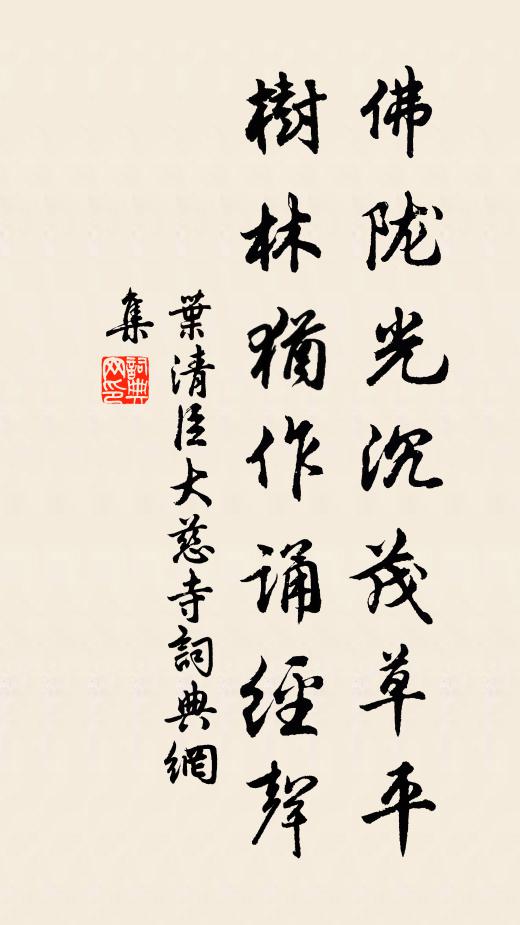 佛陇光沉茂草平
樹林猶作诵經聲
葉清臣大慈寺詞典網
集
詞典网印